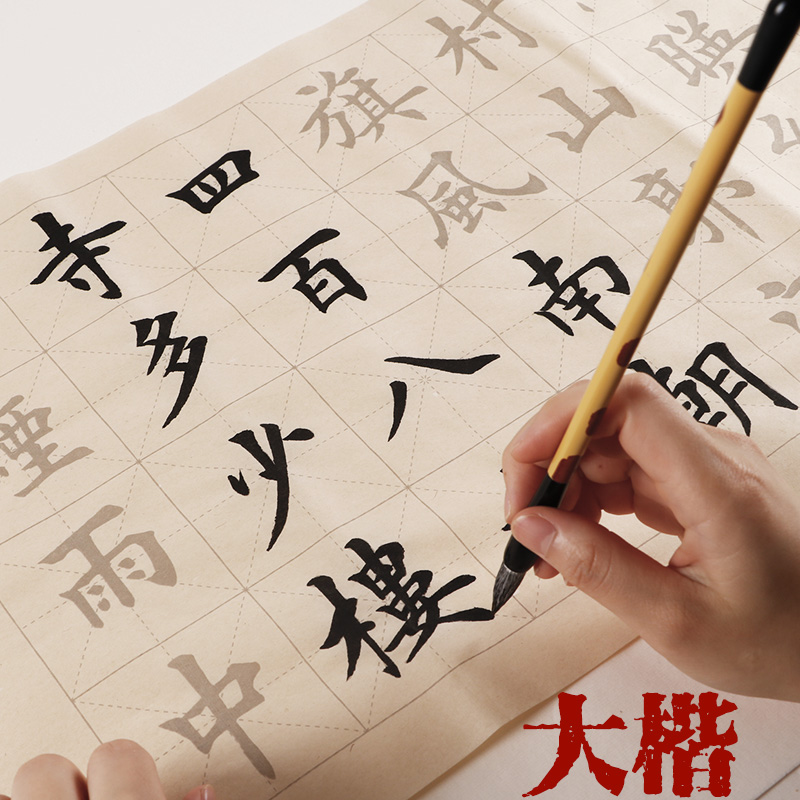 暎
村山郭
旗風南朝
四百八
寺多少樓
煙雨中
大楷